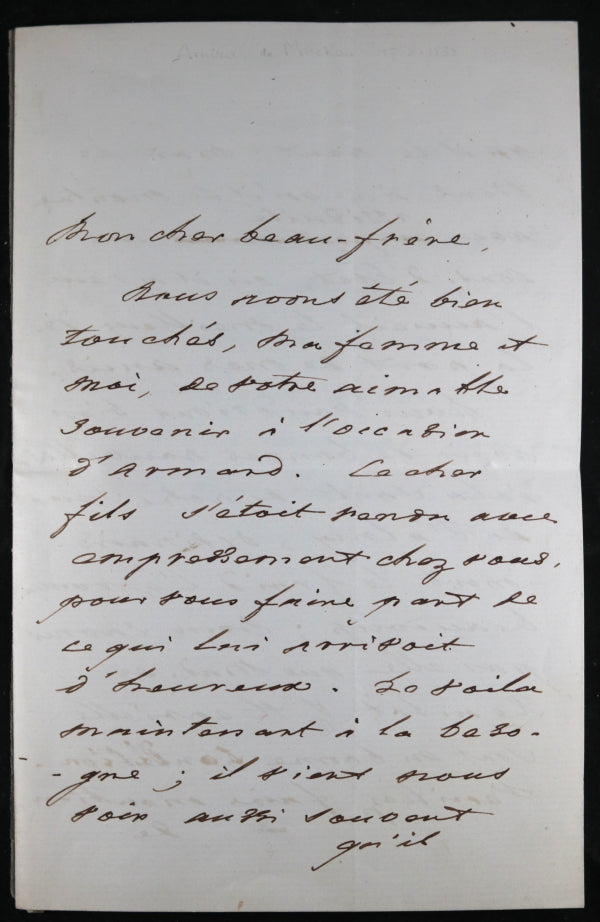 Mon cher beau-frère,
Nous avons été bien
touchés, ma femme et
moi, de votre aimable
souvenir à l'occasion
d'Armand. Ce cher
fils s'étoit rendu avec
empressement chez vous,
pour vous faire part de
ce qui lui arrivoit
d'heureux. Le voila
maintenant à la beso-
-gne ; il vient nous
voir aussi souvent
qu'il